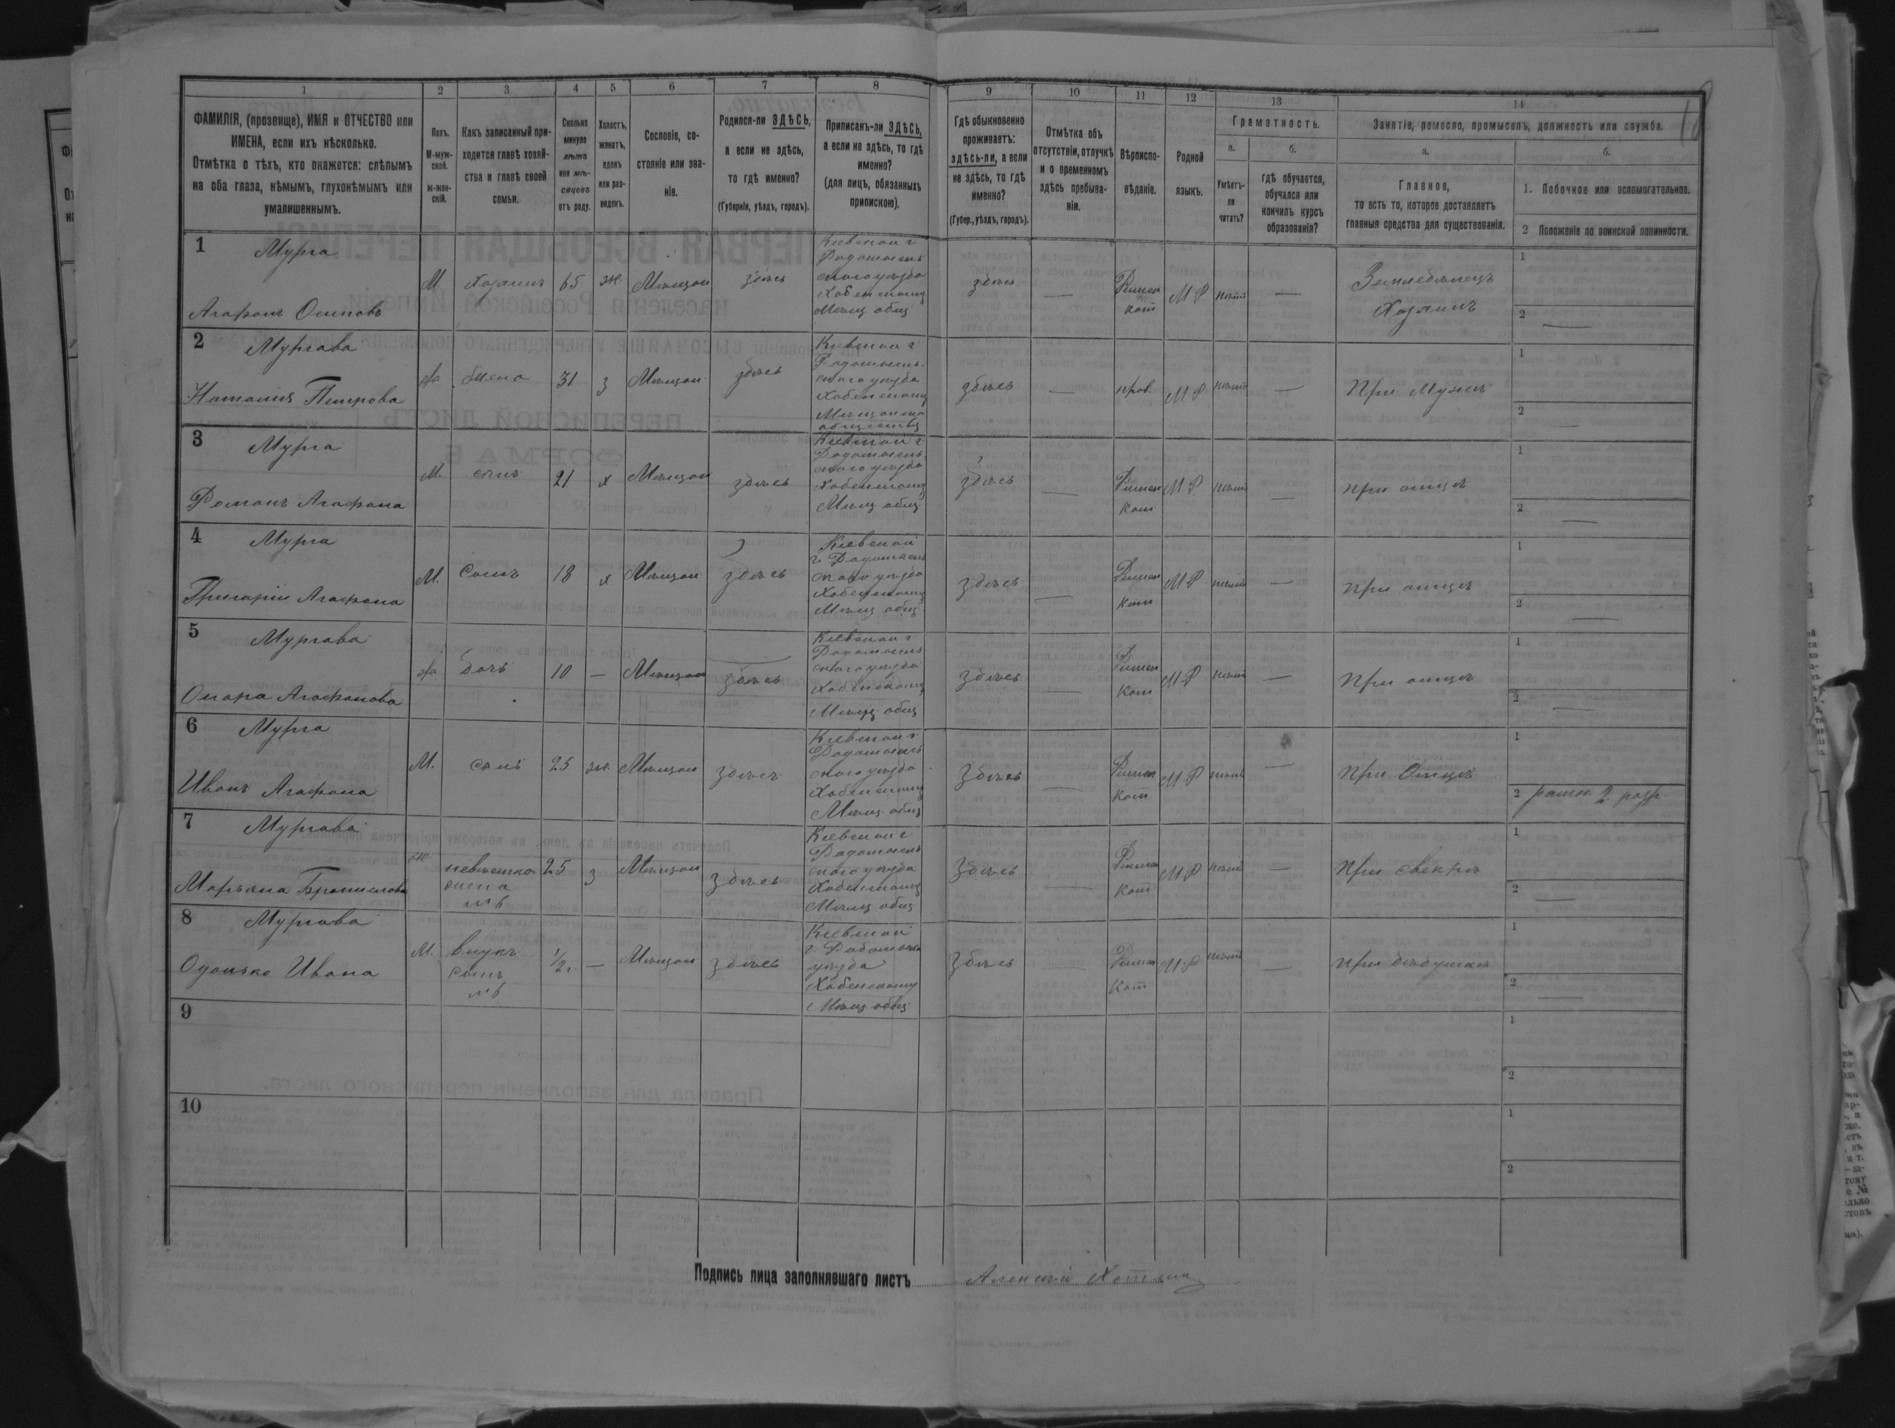 1 2 3 4 5 6 7 8 9 10 11 12 13 14
ФАМИЛІЯ, (прозвище), ИМЯ и ОТЧЕСТВО или
ИМЕНА, если ихъ нѣсколько.
Отмѣтка о тѣхъ, кто окажется: слѣпымъ
на оба глаза, нѣмымъ, глухонѣмымъ или
умалишеннымъ.
Полъ.
М-муж-
ской.
ж-жен-
скій.
Какъ записанный при-
ходится главѣ хозяй-
ства и главѣ своей
семьи.
Сколько
минуло
лѣтъ
или мѣ-
сяцевъ
отъ роду.
Холостъ,
женатъ,
вдовъ
или раз-
веденъ.
Сословіе, со-
стояніе или зва-
ніе.
Родился-ли ЗДѢСЬ,
а если не здѣсь,
то гдѣ именно?
(Губернія, уѣздъ, городъ).
Приписанъ-ли ЗДѢСЬ,
а если не здѣсь, то гдѣ
именно?
(для лицъ, обязанныхъ
припискою).
Гдѣ обыкновенно
проживаетъ:
здѣсь-ли, а если
не здѣсь, то гдѣ
именно?
(Губер., уѣздъ, городъ).
Отмѣтка объ
отсутствіи, отлучкѣ
и о временномъ
здѣсь пребыва-
ніи.
Вѣроиспо-
вѣданіе.
Родной
языкъ.
Грамотность.
а.
Умѣетъ-
ли
читать?
б.
гдѣ обучается,
обучался или
кончилъ курсъ
образованія?
Занятіе, ремесло, промыселъ, должность или служба.
а.
Главное,
то есть то, которое доставляетъ
главныя средства для существованія.
б.
1. Побочное или вспомогательное.
2 Положеніе по воинской повинности.
1 Мурга
Агафонъ Осиповъ
М. Хозяинъ 65 ж. Мѣщан здѣсь
Кіевской г
Радомысль
скаго уѣзда
Хабенскому
Мѣщ общ
здѣсь — Римск
кат МР нѣтъ —
Земледѣлецъ
Хозяинъ
1
2 —
2 Мургова
Наталия Петрова
ж жена 31 з Мѣщан здѣсь
Кіевской г
Радомысль-
скаго уѣзда
Хабенскому
Мѣщанско
обществу
здѣсь — прав. МР нѣтъ — При Мужѣ
1
2 —
3 Мурга
Романъ Агафона
М. сынъ 21 х Мѣщан здѣсь
Кіевской г
Радомысль
скаго уѣзда
Хабенскому
Мѣщ общ
здѣсь — Римск
кат МР нѣтъ — при отцѣ
1
2 —
4 Мурга
Григорій Агафона
М. Сынъ 18 х Мѣщан здѣсь
Кіевской
г. Радомысль
скаго уѣзда
Хабенскому
Мѣщ общ
здѣсь — Римск
кат МР нѣтъ — при отцѣ
1
2 —
5 Мургова
Агафонова
ж дочь 10 — Мѣщан здѣсь
Кіевской г
Радомысль
скаго уѣзда
Хабенскому
Мѣщ общ
здѣсь — Римск
кат МР нѣтъ — При отцѣ
1
2 —
6 Мурга
Иванъ Агафона
М. сынъ 25 ж. Мѣщан здѣсь
Кіевской г
Радомысль
скаго уѣзда
Хабенскому
Мѣщ общ
здѣсь — Римск
кат МР нѣтъ — При Отцѣ
1
2 ратн. 2 разр.
7 Мургова
Марьяна Брониславова
ж невѣстка
жена
№6 25 з Мѣщан здѣсь
Кіевской г
Радомысль
скаго уѣзда
Хабенскому
Мѣщ общ
здѣсь — Римск
кат МР нѣтъ — При свекрѣ
1
2 —
8 Мургова
Ивана
М. внукъ
сынъ
№6 1/2 г — Мѣщан здѣсь
Кіевской
г. Радомысль
уѣзда
Хабенскому
Мѣщ общ
здѣсь — Римск
кат МР нѣтъ — при дѣдушкѣ
1
2 —
9
1
2
10
1
2
Подпись лица заполнявшаго листъ Алексѣй